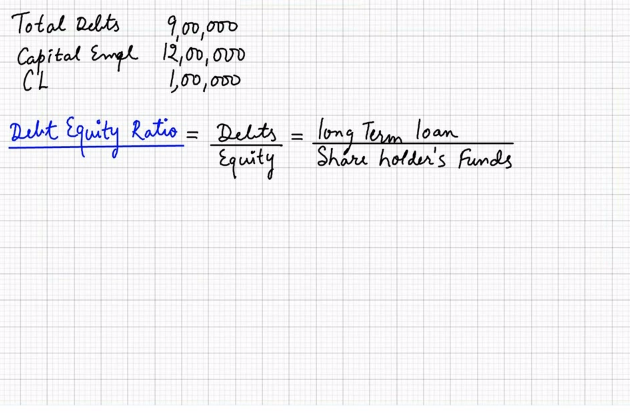 Total Debts 9,00,000
Capital Empl 12,00,000
CL 1,00,000
Debt Equity Ratio = Debts / Equity = long Term loan / Share holder's Funds